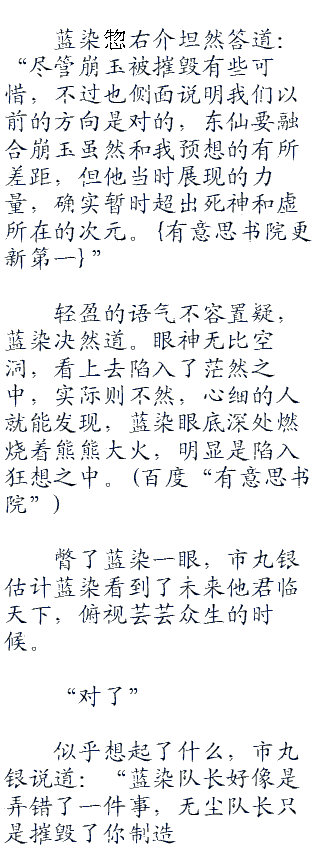 蓝染惣右介坦然答道：
“尽管崩玉被摧毁有些可
惜，不过也侧面说明我们以
前的方向是对的，东仙要融
合崩玉虽然和我预想的有所
差距，但他当时展现的力
量，确实暂时超出死神和虚
所在的次元。{有意思书院更
新第一}”
轻盈的语气不容置疑，
蓝染决然道。眼神无比空
洞，看上去陷入了茫然之
中，实际则不然，心细的人
就能发现，蓝染眼底深处燃
烧着熊熊大火，明显是陷入
狂想之中。(百度“有意思书
院”)
瞥了蓝染一眼，市丸银
估计蓝染看到了未来他君临
天下，俯视芸芸众生的时
候。
“对了”
似乎想起了什么，市丸
银说道：“蓝染队长好像是
弄错了一件事，无尘队长只
是摧毁了你制造